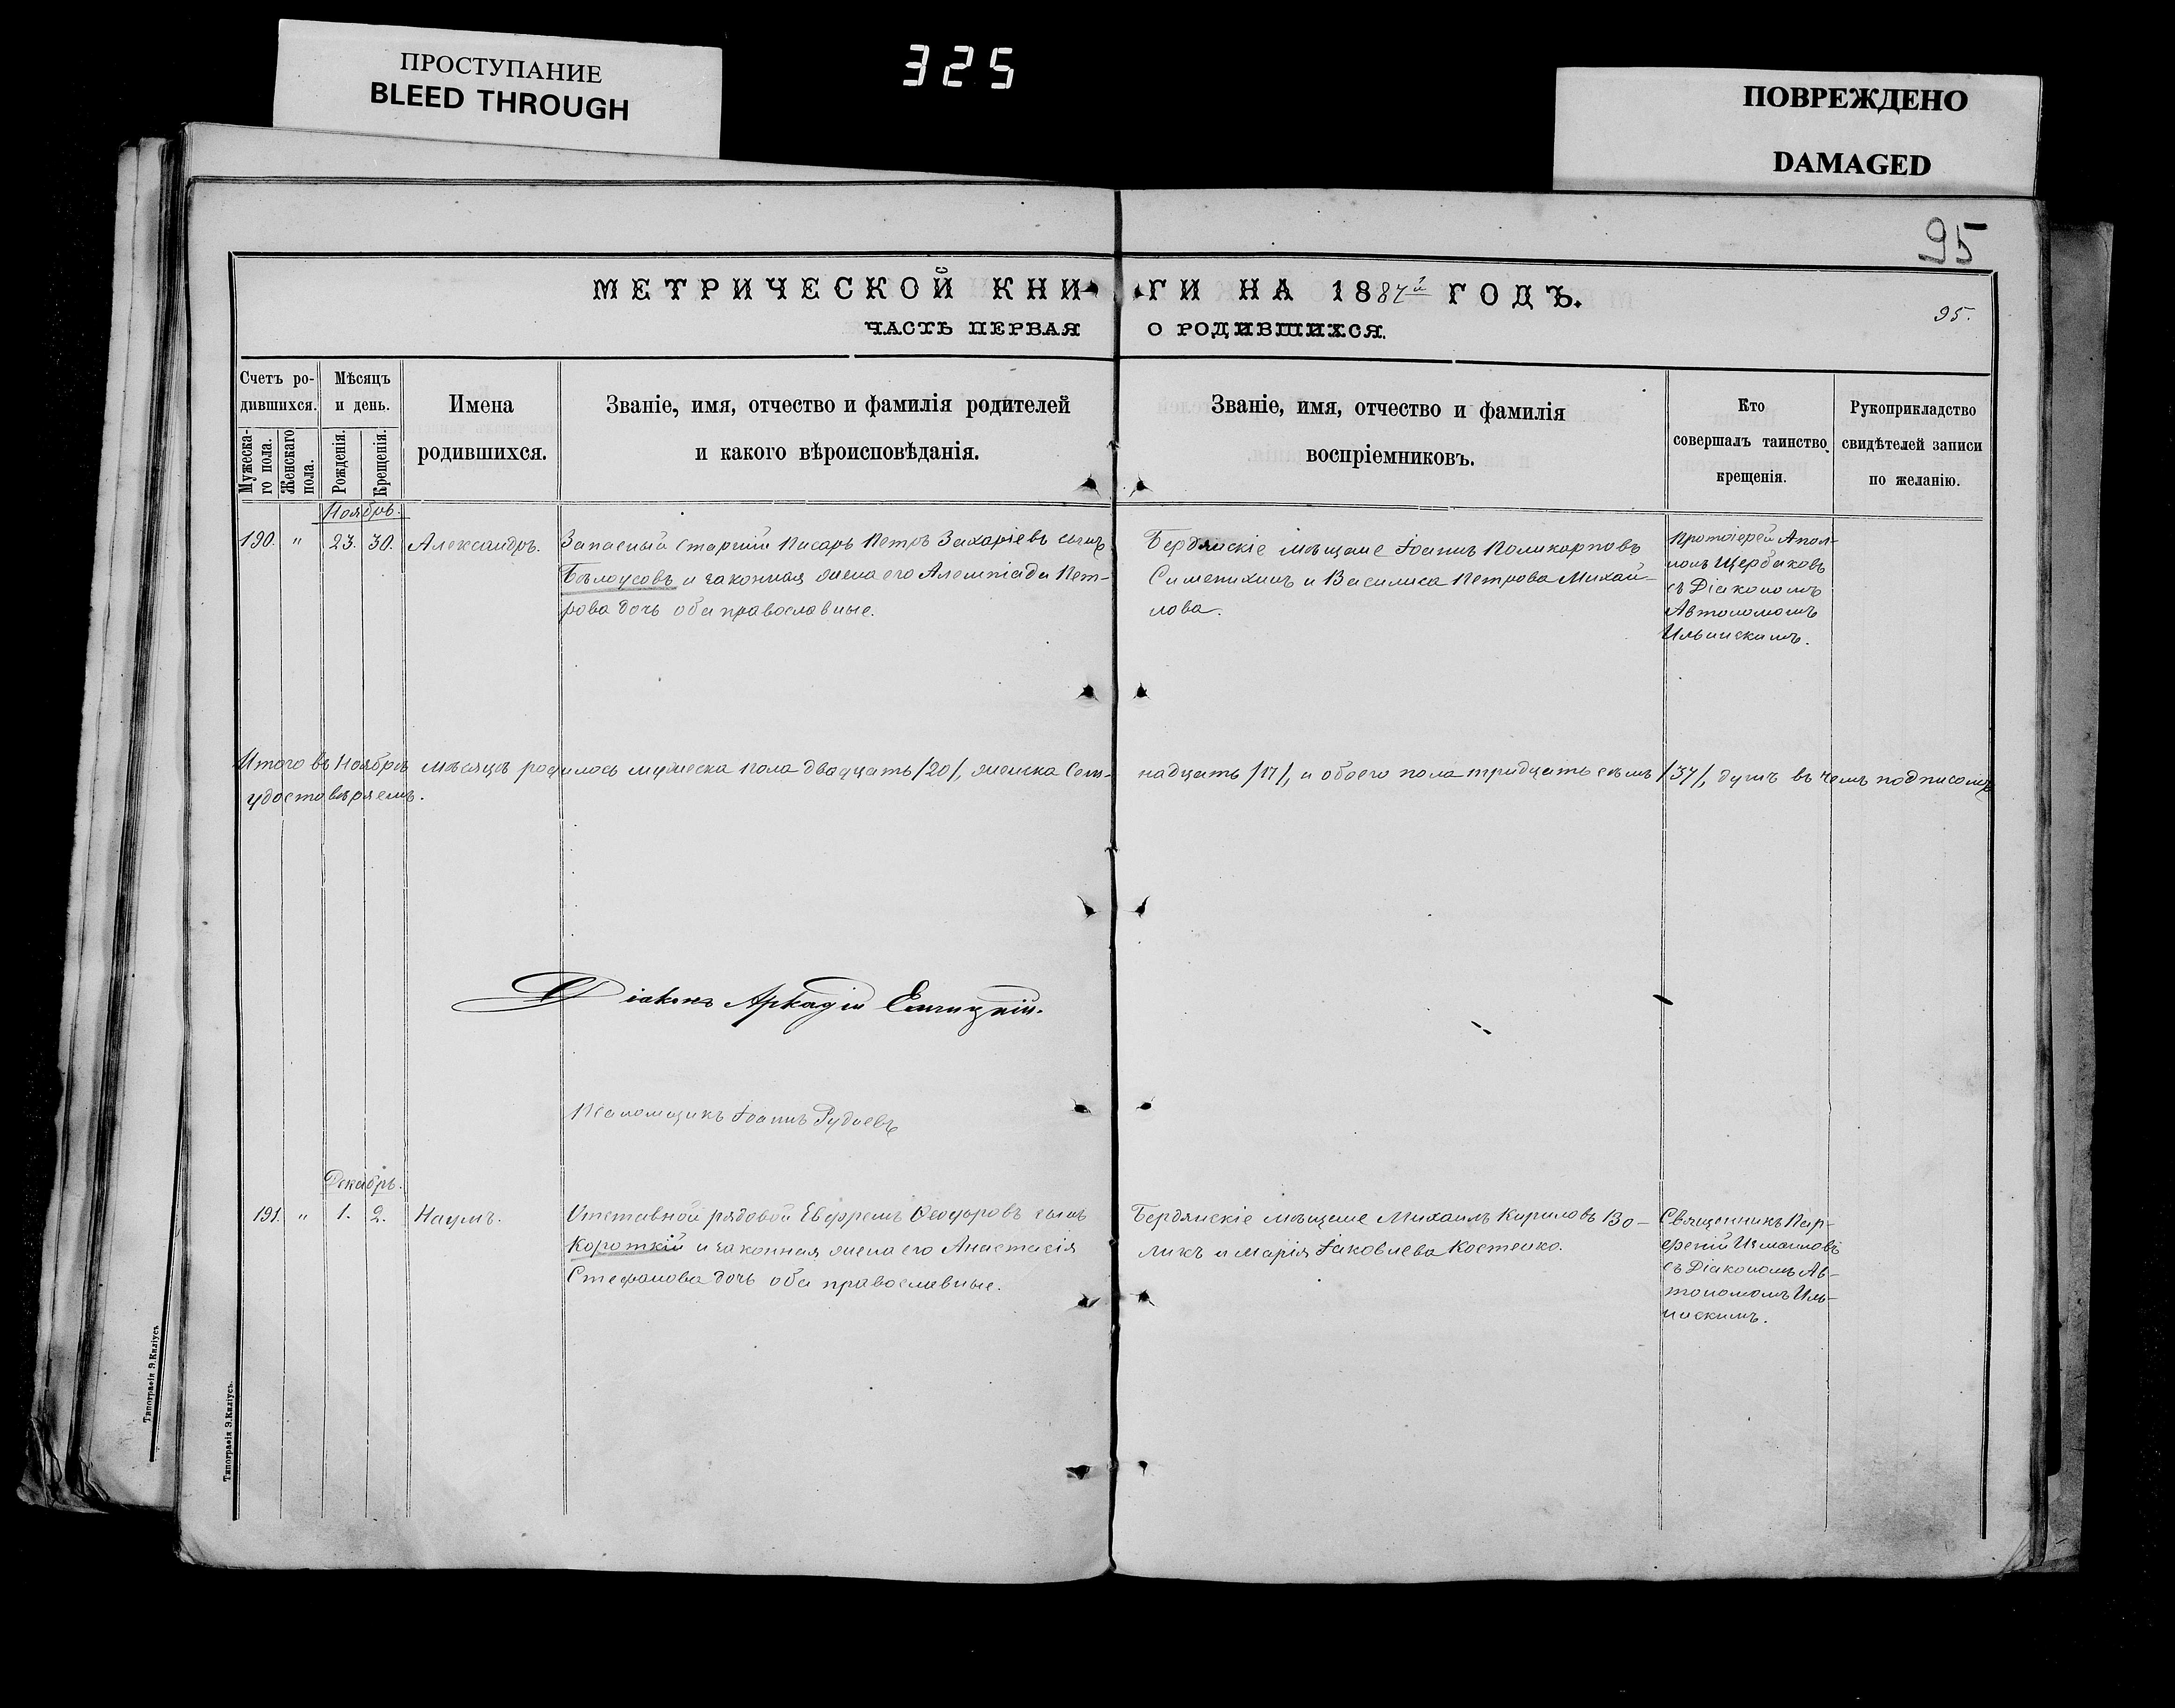 ПРОСТУПАНИЕ
BLEED THROUGH
325
ПОВРЕЖДЕНО
DAMAGED
95
МЕТРИЧЕСКОЙ КНИ-ГИ НА 1887й ГОДЪ.
ЧАСТЬ ПЕРВАЯ О РОДИВШИХСЯ.
95.
Счетъ ро-
дившихся.
Мужеска-
го пола.
Женскаго
пола.
Мѣсяцъ
и день.
Рожденія.
Крещенія.
Имена
родившихся.
Званіе, имя, отчество и фамилія родителей
и какого вѣроисповѣданія.
Званіе, имя, отчество и фамилія
воспріемниковъ.
Кто
совершалъ таинство
крещенія.
Рукоприкладство
свидѣтелей записи
по желанію.
Ноябрь.
190. " 23. 30. Александръ.
Запасный старшій писарь Петръ Захаріевъ сынъ
Бѣлоусовъ и законная жена его Алемпіада Пет-
рова дочь оба православные.
Бердянскіе мѣщане Іоаннъ Поликарповъ
и Василиса Петрова Михай-
лова.
Протоіерей Апол-
лонъ Щербаковъ
съ Діакономъ
Автономомъ
Ильинскимъ.
Итого въ Ноябрѣ мѣсяцѣ родилось мужеска пола двадцать /20/, женска Сем-надцать /17/, и обоего пола тридцать семь /37/, душъ въ чемъ подписомъ
удостовѣряемъ.
Діаконъ Аркадій
Псаломщикъ Іоаннъ
Декабрь.
191. " 1. 2. Наумъ.
Отставной рядовой Евфремъ Ѳеодоровъ сынъ
Короткій и законная жена его Анастасія
Стефанова дочь оба православные.
Бердянскіе мѣщане Михаилъ Кириловъ Во-
ликъ и Марія Іаковлева Костенко.
Священникъ Пар-
феній Измаиловъ
съ Діакономъ Ав-
тономомъ Иль-
инскимъ.
Типографія Э.Киліусъ.
Типографія Э.Киліусъ